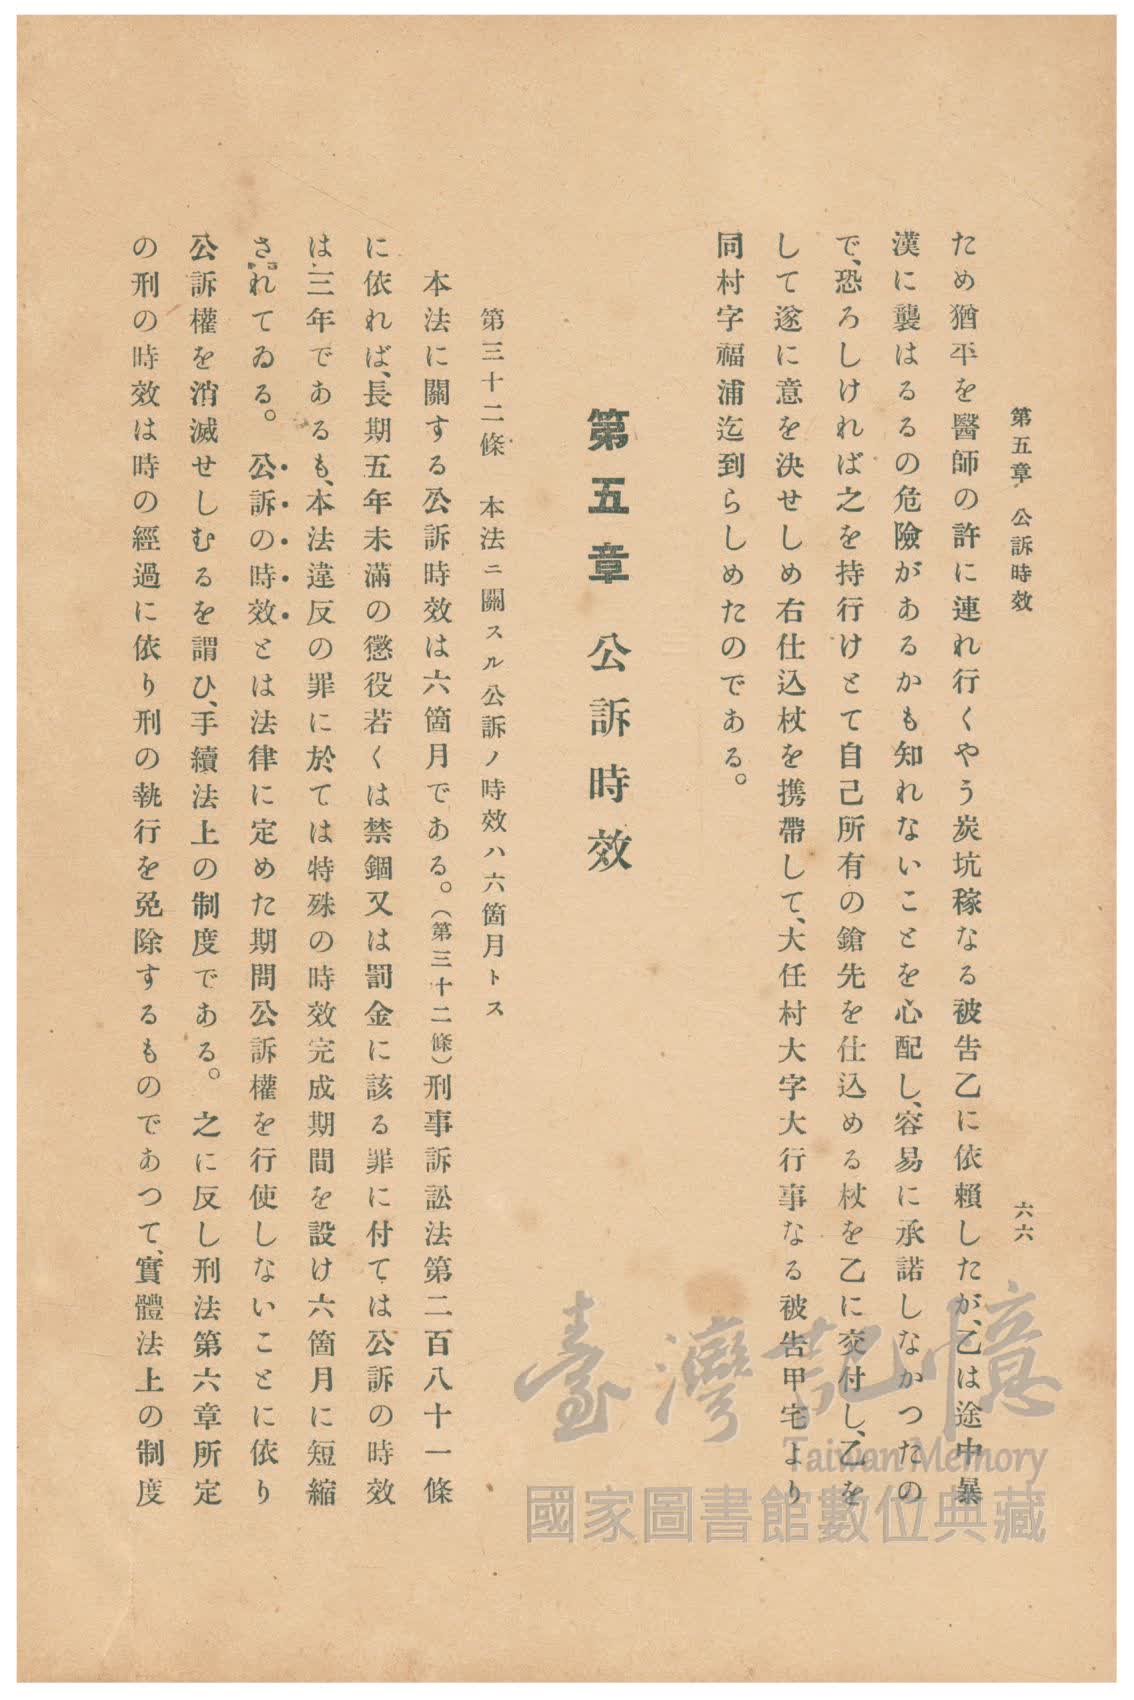 第五章　公訴時效
六六
ため猶平を醫師の許に連れ行くやう炭坑稼なる被吿乙に依賴したが、乙は途中暴
漢に襲はるるの危險があるかも知れないことを心配し、容易に承諾しなかつたの
で、恐ろしければ之を持行けとて自己所有の鎗先を仕込める杖を乙に交付し、乙を
して遂に意を決せしめ右仕込杖を携帶して、大任村大字大行事なる被吿甲宅より
同村字福浦迄到らしめたのである。
第五章　公訴時效
第三十二條　本法ニ關スル公訴ノ時效ハ六箇月トス
本法に關する公訴時效は六箇月である。（第三十二條）刑事訴訟法第二百八十一條
に依れば、長期五年未滿の懲役若くは禁錮又は罰金に該る罪に付ては公訴の時效
は三年であるも、本法違反の罪に於ては特殊の時效完成期間を設け六箇月に短縮
されてゐる。公訴の時效とは法律に定めた期間公訴權を行使しないことに依り
公訴權を消滅せしむるを謂ひ、手續法上の制度である。之に反し刑法第六章所定
の刑の時效は時の經過に依り刑の執行を免除するものであつて、實體法上の制度
臺灣記憶
Taiwan Memory
國家圖書館數位典藏